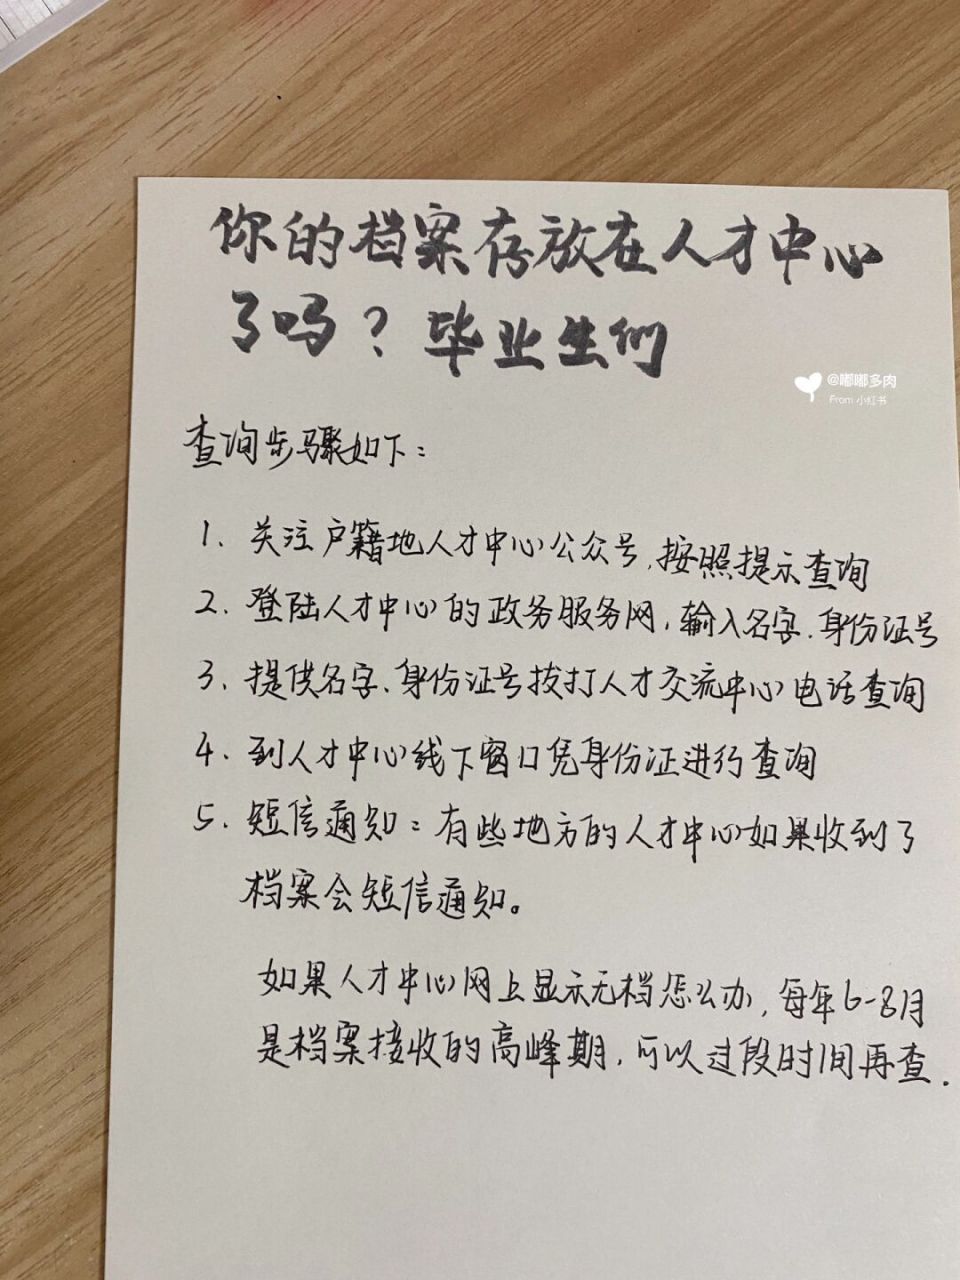 你的档案存放在人才中心
了吗？毕业生们
@嘟嘟多肉
From 小红书
查询步骤如下：
1. 关注户籍地人才中心公众号，按照提示查询
2. 登陆人才中心的政务服务网，输入名字、身份证号
3. 提供名字、身份证号拨打人才交流中心电话查询
4. 到人才中心线下窗口凭身份证进行查询
5. 短信通知：有些地方的人才中心如果收到了
档案会短信通知。
如果人才中心网上显示无档怎么办，每年6-8月
是档案接收的高峰期，可以过段时间再查.